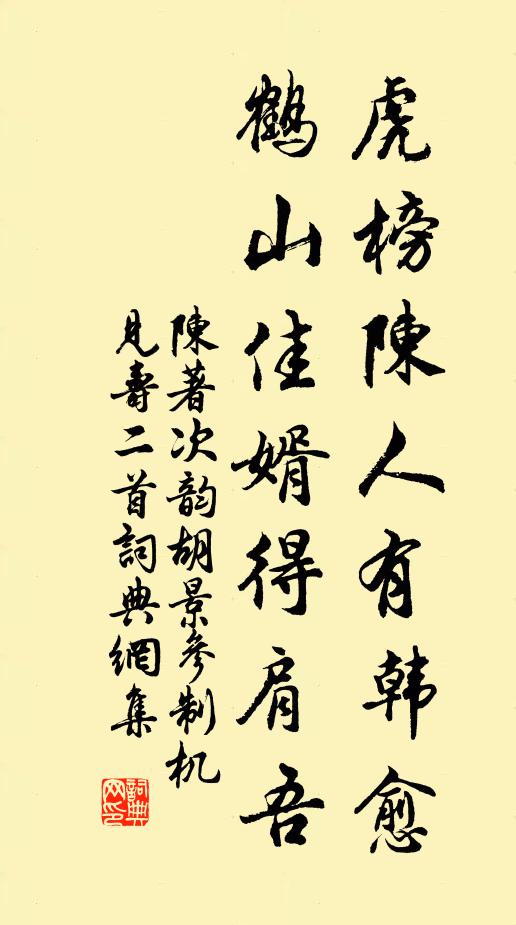 虎榜陳人有韩愈
鶴山佳婿得肩吾
陳著次韵胡景參制机
見壽二首詞典網集
詞典网印